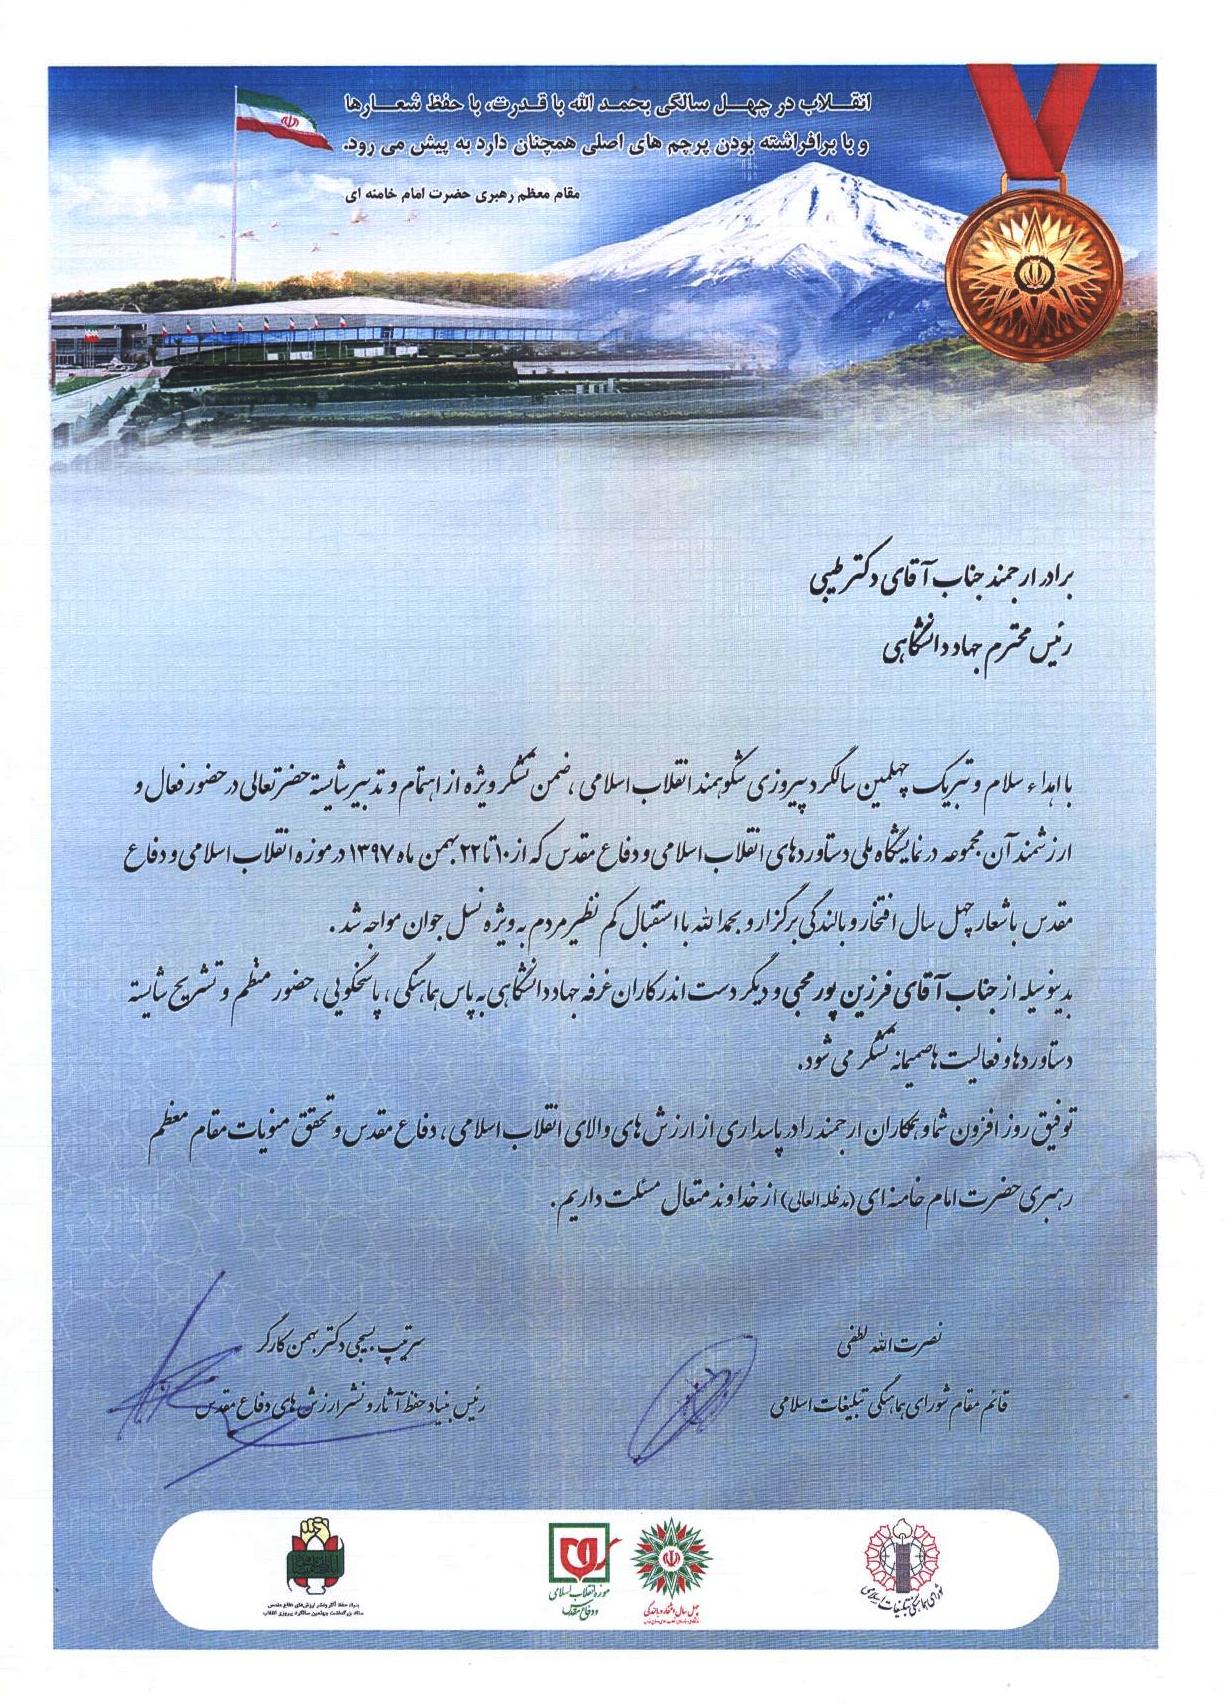 انقلاب در چهل سالگی بحمد الله با قدرت، با حفظ شعارها
و با برافراشته بودن پرچم های اصلی همچنان دارد به پیش می رود.
مقام معظم رهبری حضرت امام خامنه ای
برادر ارجمند جناب آقای دکتر طیبی
رئیس محترم جهاد دانشگاهی
با اهداء سلام و تبریک چهلمین سالگرد پیروزی شکوهمند انقلاب اسلامی، ضمن تشکر ویژه از اهتمام و تدبیر شایسته حضرتعالی در حضور فعال و
ارزشمند آن مجموعه در نمایشگاه ملی دستاوردهای انقلاب اسلامی و دفاع مقدس که از ۱۰ تا ۲۲ بهمن ماه ۱۳۹۷ در موزه انقلاب اسلامی و دفاع
مقدس با شعار چهل سال افتخار و بالندگی برگزار و بحمدالله با استقبال کم نظیر مردم به ویژه نسل جوان مواجه شد.
بدینوسیله از جناب آقای فرزین پورمحبی و دیگر دست اندرکاران غرفه جهاد دانشگاهی به پاس هماهنگی، پاسخگویی، حضور منظم و تشریح شایسته
دستاوردها و فعالیت ها صمیمانه تشکر می شود.
توفیق روز افزون شما و همکاران ارجمند را در پاسداری از ارزش های والای انقلاب اسلامی، دفاع مقدس و تحقق منویات مقام معظم
رهبری حضرت امام خامنه ای (مدظله العالی) از خداوند متعال مسئلت داریم.
نصرت الله لطفی
قائم مقام شورای هماهنگی تبلیغات اسلامی
سرتیپ بسیجی دکتر بهمن کارگر
رئیس بنیاد حفظ آثار و نشر ارزش های دفاع مقدس
شورای هماهنگی تبلیغات اسلامی
چهل سال افتخار و بالندگی
موزه انقلاب اسلامی
و دفاع مقدس
بنیاد حفظ آثار و نشر ارزش‌های دفاع مقدس
ستاد بزرگداشت چهلمین سالگرد پیروزی انقلاب